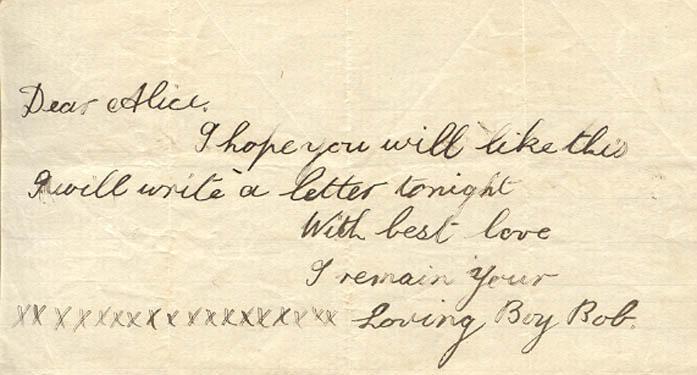 Dear Alice.
I hope you will like this
I will write a letter tonight
With best love
I remain Your
xxxxxxxxxxxxxxxxxxx Loving Boy Bob.